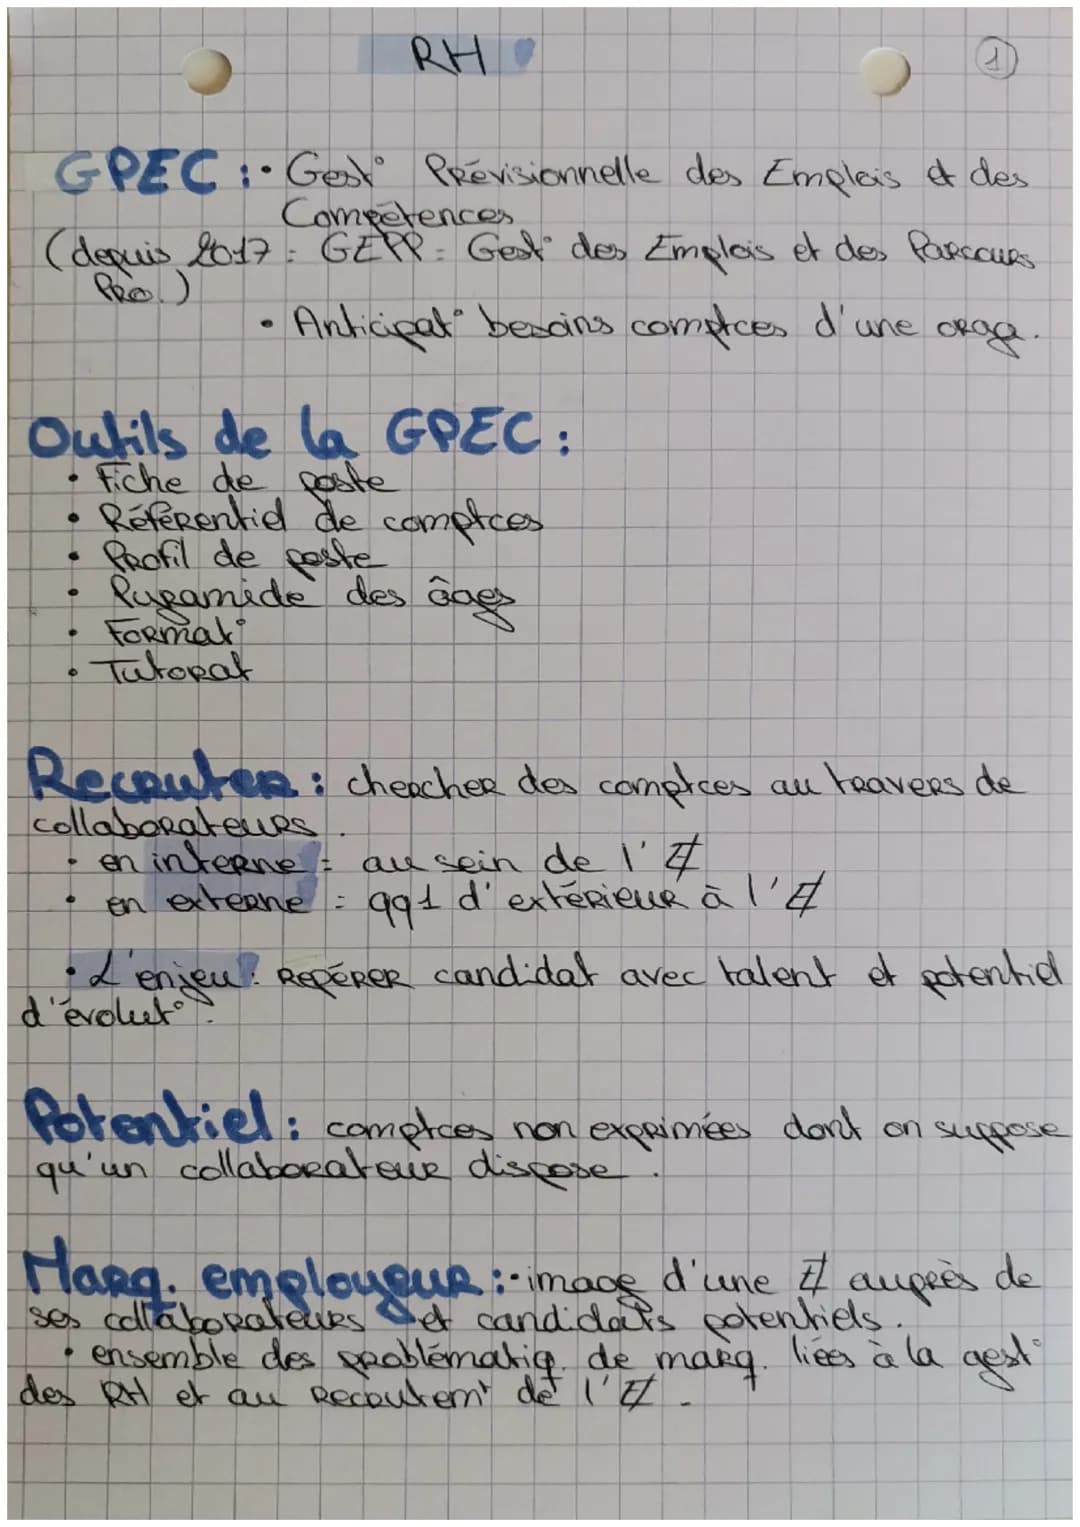 RH
1
GPEC : • Gest° Prévisionnelle des Emplois et des
Compétences
(depuis 2017 : GEPP = Gest° des Emplois et des Parcours
Pro.)
• Anticipat° besoins comptces d'une orga.
Outils de la GPEC :
• Fiche de poste
• Référentiel de comptces
• Profil de poste
• Pyramide des âges
• Format°
• Tutorat
Recruter : chercher des comptces au travers de
collaborateurs.
• en interne = au sein de l'E
• en externe = qq1 d'extérieur à l'E
• L'enjeu : Repérer candidat avec talent et potentiel
d'évolut°.
Potentiel : comptces non exprimées dont on suppose
qu'un collaborateur dispose.
Marq. employeur : • image d'une E auprès de
ses collaborateurs et candidats potentiels.
• ensemble des problématiq. de marq. liées à la gest°
des RH et au recrutemt de l'E.